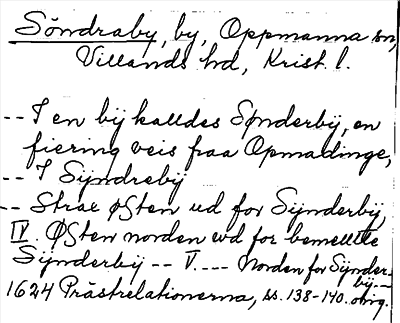 Söndraby, by, Oppmanna sn,
Villands hd, Krist. l.
-- I en bÿ kalldes Sønderbÿ, en
fiering veis fraa Opmadinge,
-- I Sÿndrebÿ
-- Strax østen ud for Sÿnderbÿ,
IV. Østen norden wd for bemellte
Sÿnderbÿ -- V. --- Norden for Sÿnder-
bÿ---
1624 Prästrelationerna, ss. 138-140. orig.